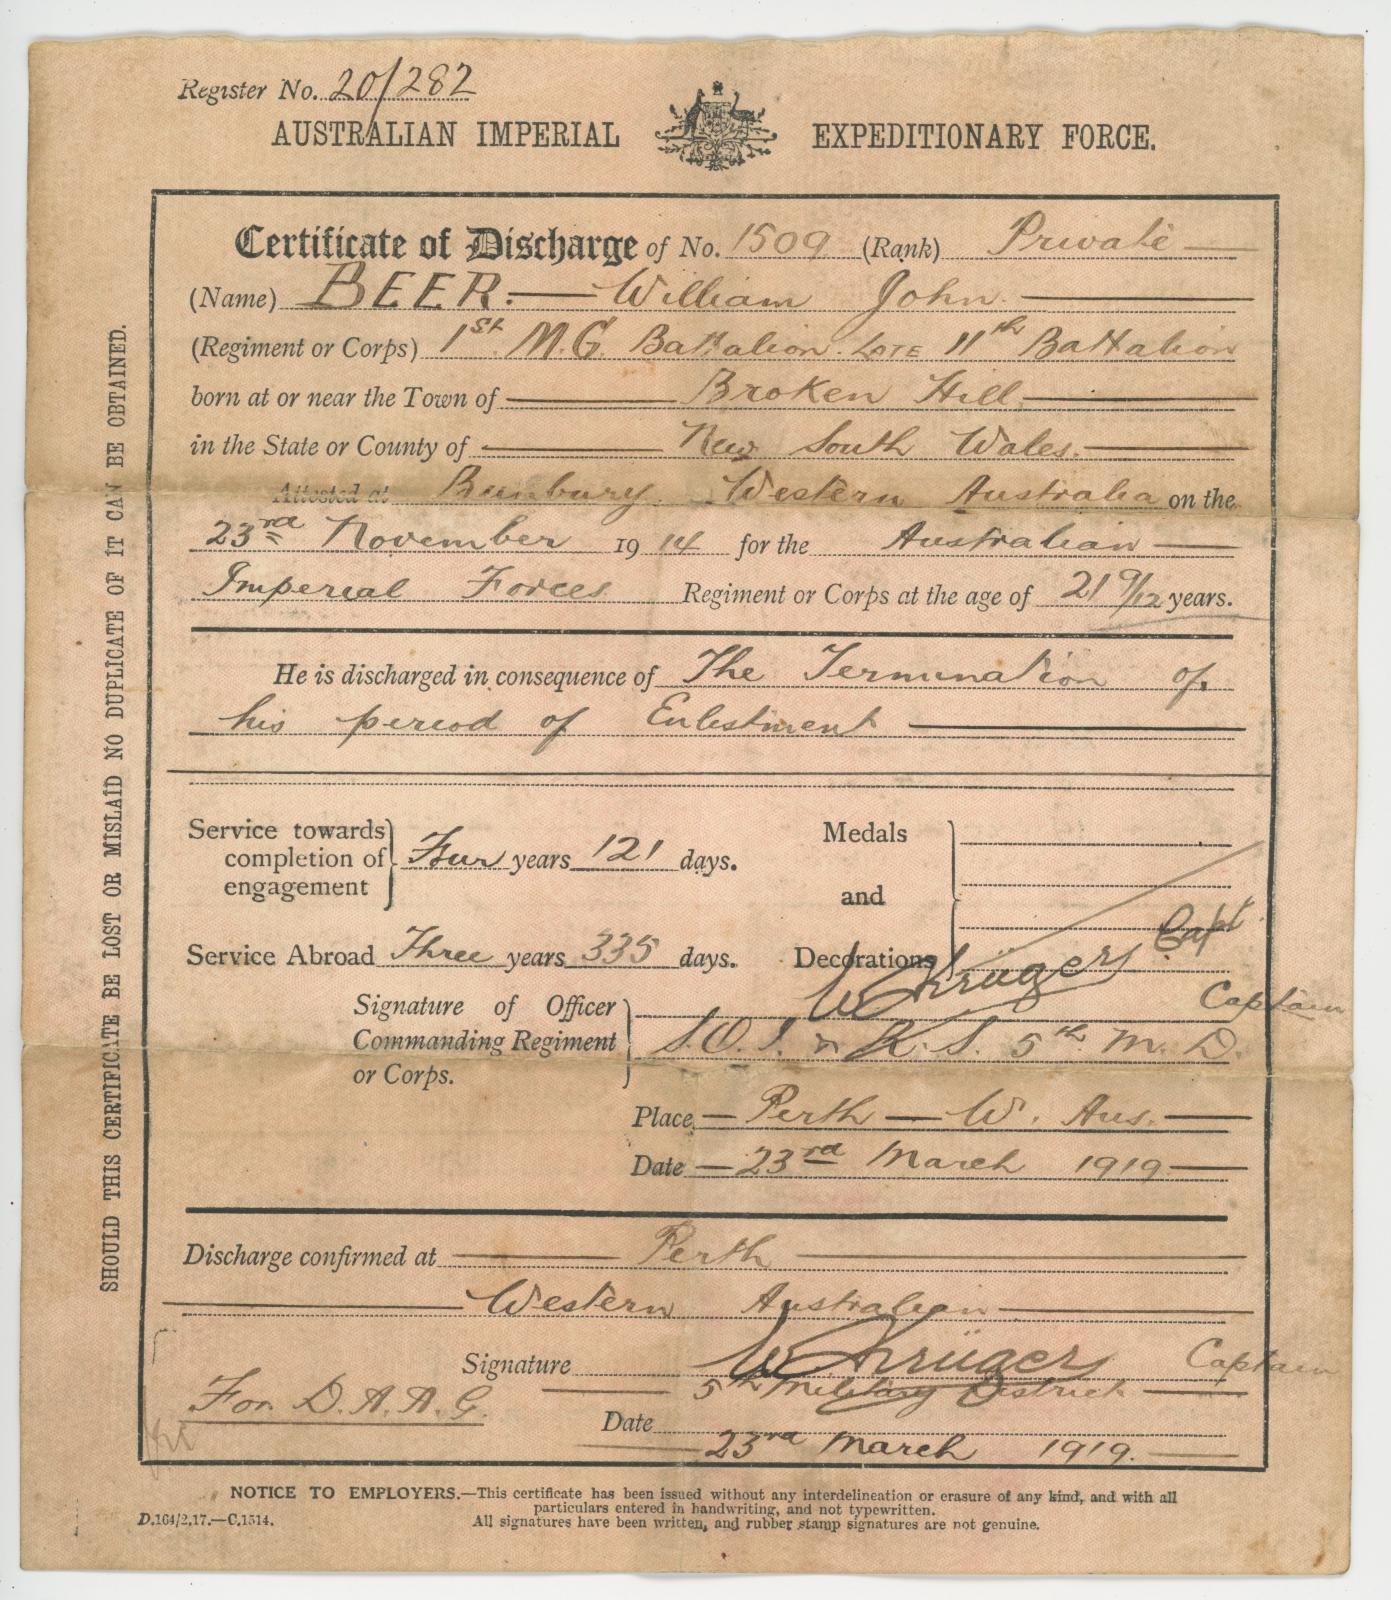 Register No. 20/282
AUSTRALIAN IMPERIAL EXPEDITIONARY FORCE.
Certificate of Discharge of No. 1509 (Rank) Private
(Name) BEER. William John.
(Regiment or Corps) 1st M.G. Battalion. LATE 11th Battalion
born at or near the Town of Broken Hill
in the State or County of New South Wales.
Attested at Bunbury Western Australia on the
23rd November 1914 for the Australian
Imperial Forces Regiment or Corps at the age of 21 9/12 years.
He is discharged in consequence of The Termination of
his period of Enlistment
Service towards completion of engagement Four years 121 days.
Medals and Decorations
Service Abroad Three years 335 days.
W Krüger Capt
Signature of Officer Commanding Regiment or Corps.
Captain
S.O.I. & R.S. 5th M.D.
Place Perth W. Aus.
Date 23rd March 1919
Discharge confirmed at Perth
Western Australian
Signature W Krüger Captain
5th Military District
For D.A.A.G.
Date 23rd March 1919.
NOTICE TO EMPLOYERS.—This certificate has been issued without any interdelineation or erasure of any kind, and with all
particulars entered in handwriting, and not typewritten.
D.164/2.17.—C.1514.
All signatures have been written, and rubber stamp signatures are not genuine.
SHOULD THIS CERTIFICATE BE LOST OR MISLAID NO DUPLICATE OF IT CAN BE OBTAINED.